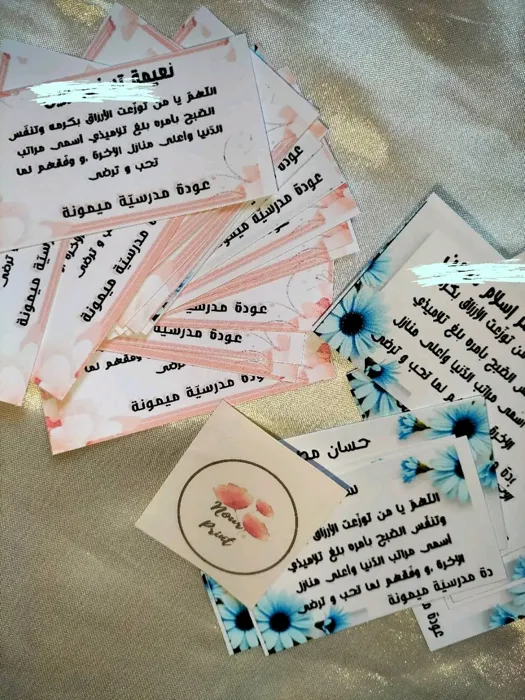 نعيمة
اللهم يا من توزّعت الأرزاق بكرمه وتنفّس
الصّبح بأمره بلغ تلاميذي اسمى مراتب
الدّنيا وأعلى منازل الآخرة .و وفّقهم لما
تحب و ترضى
عودة مدرسيّة ميمونة
عودة
عودة مدرسيّة
عودة مدرسيّة ميمونة
و ترضى
ميمونة
ترضى
عودة مدرسيّة
عودة مدرسيّة
وفقهم لما
دة مدرسيّة ميمونة
اسلام
من توزّعت الأرزاق بكر
الصّبح بأمره بلغ تلاميذي
مراتب الدّنيا وأعلى منازل
لما تحب و ترضى
حسان
اللهم يا من توزّعت الأرزاق
وتنفّس الصّبح بأمره بلغ تلاميذي
اسمى مراتب الدّنيا وأعلى منازل
الآخرة .و وفّقهم لما تحب و ترضى
دة مدرسيّة ميمونة
عودة
Nour
Print